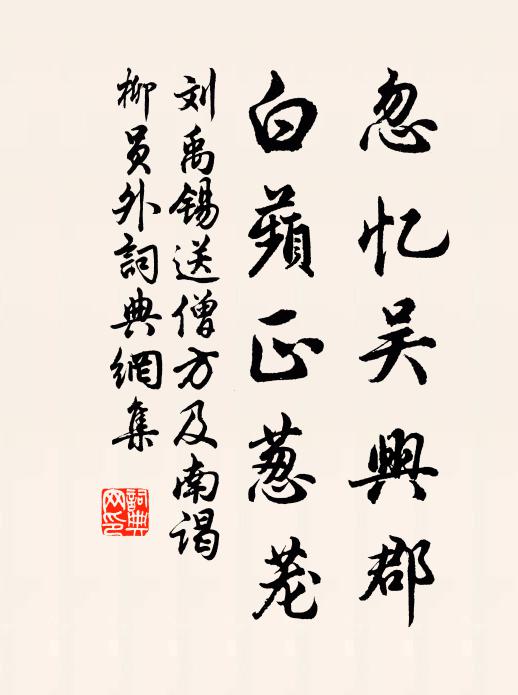 忽忆吴興郡
白蘋正葱茏
刘禹锡送僧方及南谒
柳員外詞典網集
詞典网印